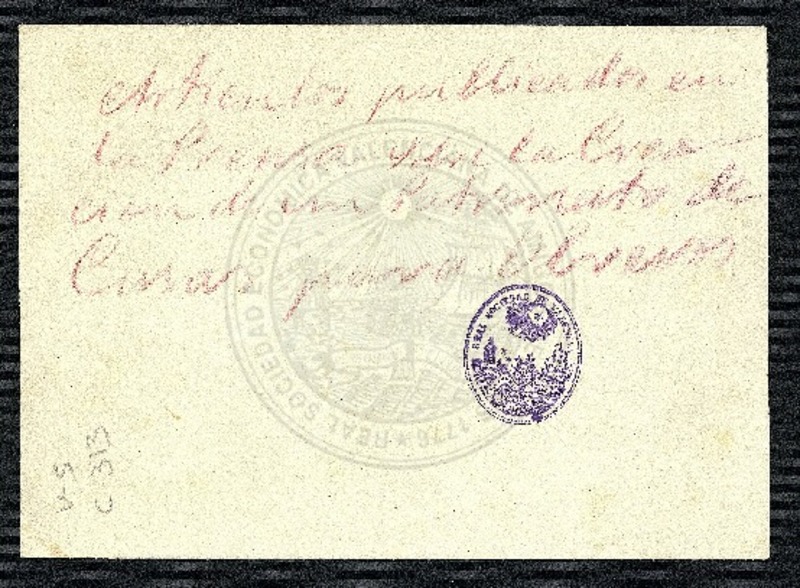 Artículos publicados en
la Prensa sobre la Crea-
cion de un Patronato de
Casas para Obreros
REAL SOCIEDAD ECONOMICA VALENCIANA DE AMIGOS
1776
REAL SOCIEDAD DE VALENCIA
C 313